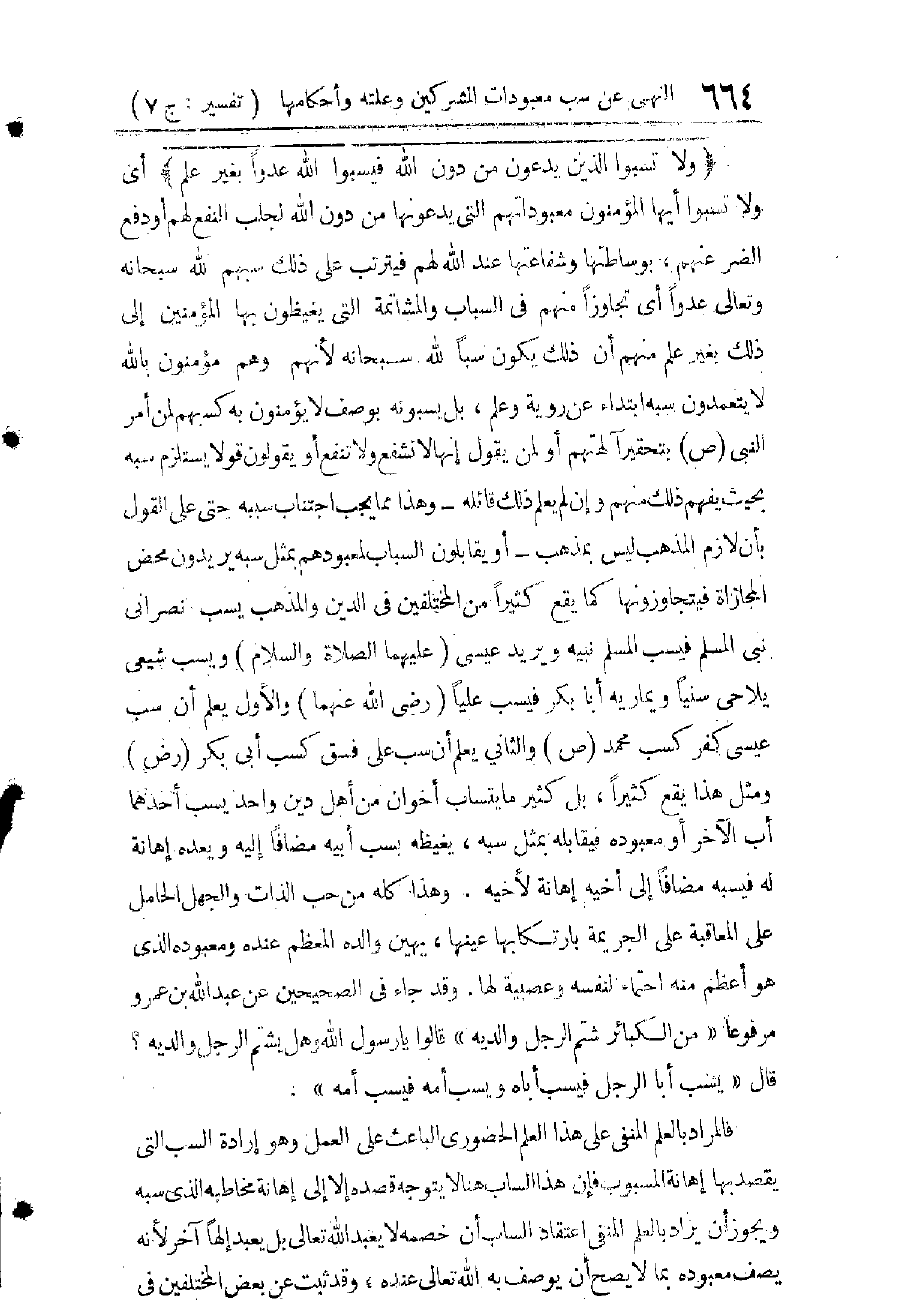 ٦٦٤ النهى عن سب معبودات المشركين وعلته وأحكامها ( تفسير : ج ٧ )
﴿ ولا تسبوا الذين يدعون من دون الله فيسبوا الله عدواً بغير علم ﴾ أى
ولا تسبوا أيها المؤمنون معبوداتهم التى يدعونها من دون الله لجلب النفع لهم أو دفع
الضر عنهم ، بوساطتها وشفاعتها عند الله لهم فيترتب على ذلك سبهم لله سبحانه
وتعالى عدواً أى تجاوزاً منهم فى السباب والمشاتمة التى يغيظون بها المؤمنين إلى
ذلك بغير علم منهم أن ذلك يكون سباً لله سبحانه لأنهم وهم مؤمنون بالله
لا يتعمدون سبه ابتداء عن روية وعلم ، بل يسبونه بوصف لا يؤمنون به كسبهم لمن أمر
النبى (ص) بتحقير آلهتهم أو لمن يقول إنها لا تشفع ولا تنفع أو يقولون قولا يستلزم سبه
بحيث يفهم ذلك منهم وإن لم يعلم ذلك قائله ــ وهذا مما يجب اجتناب سببه حتى على القول
بأن لازم المذهب ليس بمذهب ــ أو يقابلون السباب لمعبودهم بمثل سبه يريدون محض
المجازاة فيتجاوزونها كما يقع كثيراً من المختلفين فى الدين والمذهب يسب نصرانى
نبى المسلم فيسب المسلم نبيه ويريد عيسى ( عليهما الصلاة والسلام ) ويسب شيعى
يلاحى سنياً ويماريه أبا بكر فيسب علياً ( رضى الله عنهما ) والأول يعلم أن سب
عيسى كفر كسب محمد (ص) والثاني يعلم أن سب على فسق كسب أبى بكر (رض)
ومثل هذا يقع كثيراً ، بل كثير ما يتساب أخوان من أهل دين واحد يسب أحدهما
أب الآخر أو معبوده فيقابله بمثل سبه ، يغيظه بسب أبيه مضافاً إليه ويعده إهانة
له فيسبه مضافاً إلى أخيه إهانة لأخيه . وهذا كله من حب الذات والجهل الحامل
على المعاقبة على الجريمة بارتكابها عينها ، يهين والده المعظم عنده ومعبوده الذى
هو أعظم منه احتماء لنفسه وعصبية لها . وقد جاء فى الصحيحين عن عبد الله بن عمرو
مرفوعاً « من الكبائر شتم الرجل والديه » قالوا يا رسول الله وهل يشتم الرجل والديه ؟
قال « يسب أبا الرجل فيسب أباه ويسب أمه فيسب أمه » .
فالمراد بالعلم المنفى على هذا العلم الحضورى الباعث على العمل وهو إرادة السب التى
يقصد بها إهانة المسبوب فإن هذا الساب هنا لا يتوجه قصده إلا إلى إهانة مخاطبه الذى سبه
ويجوز أن يراد بالعلم المنفى اعتقاد الساب أن خصمه لا يعبد الله تعالى بل يعبد إلهاً آخر لأنه
يصف معبوده بما لا يصح أن يوصف به الله تعالى عنده ، وقد ثبت عن بعض المختلفين فى